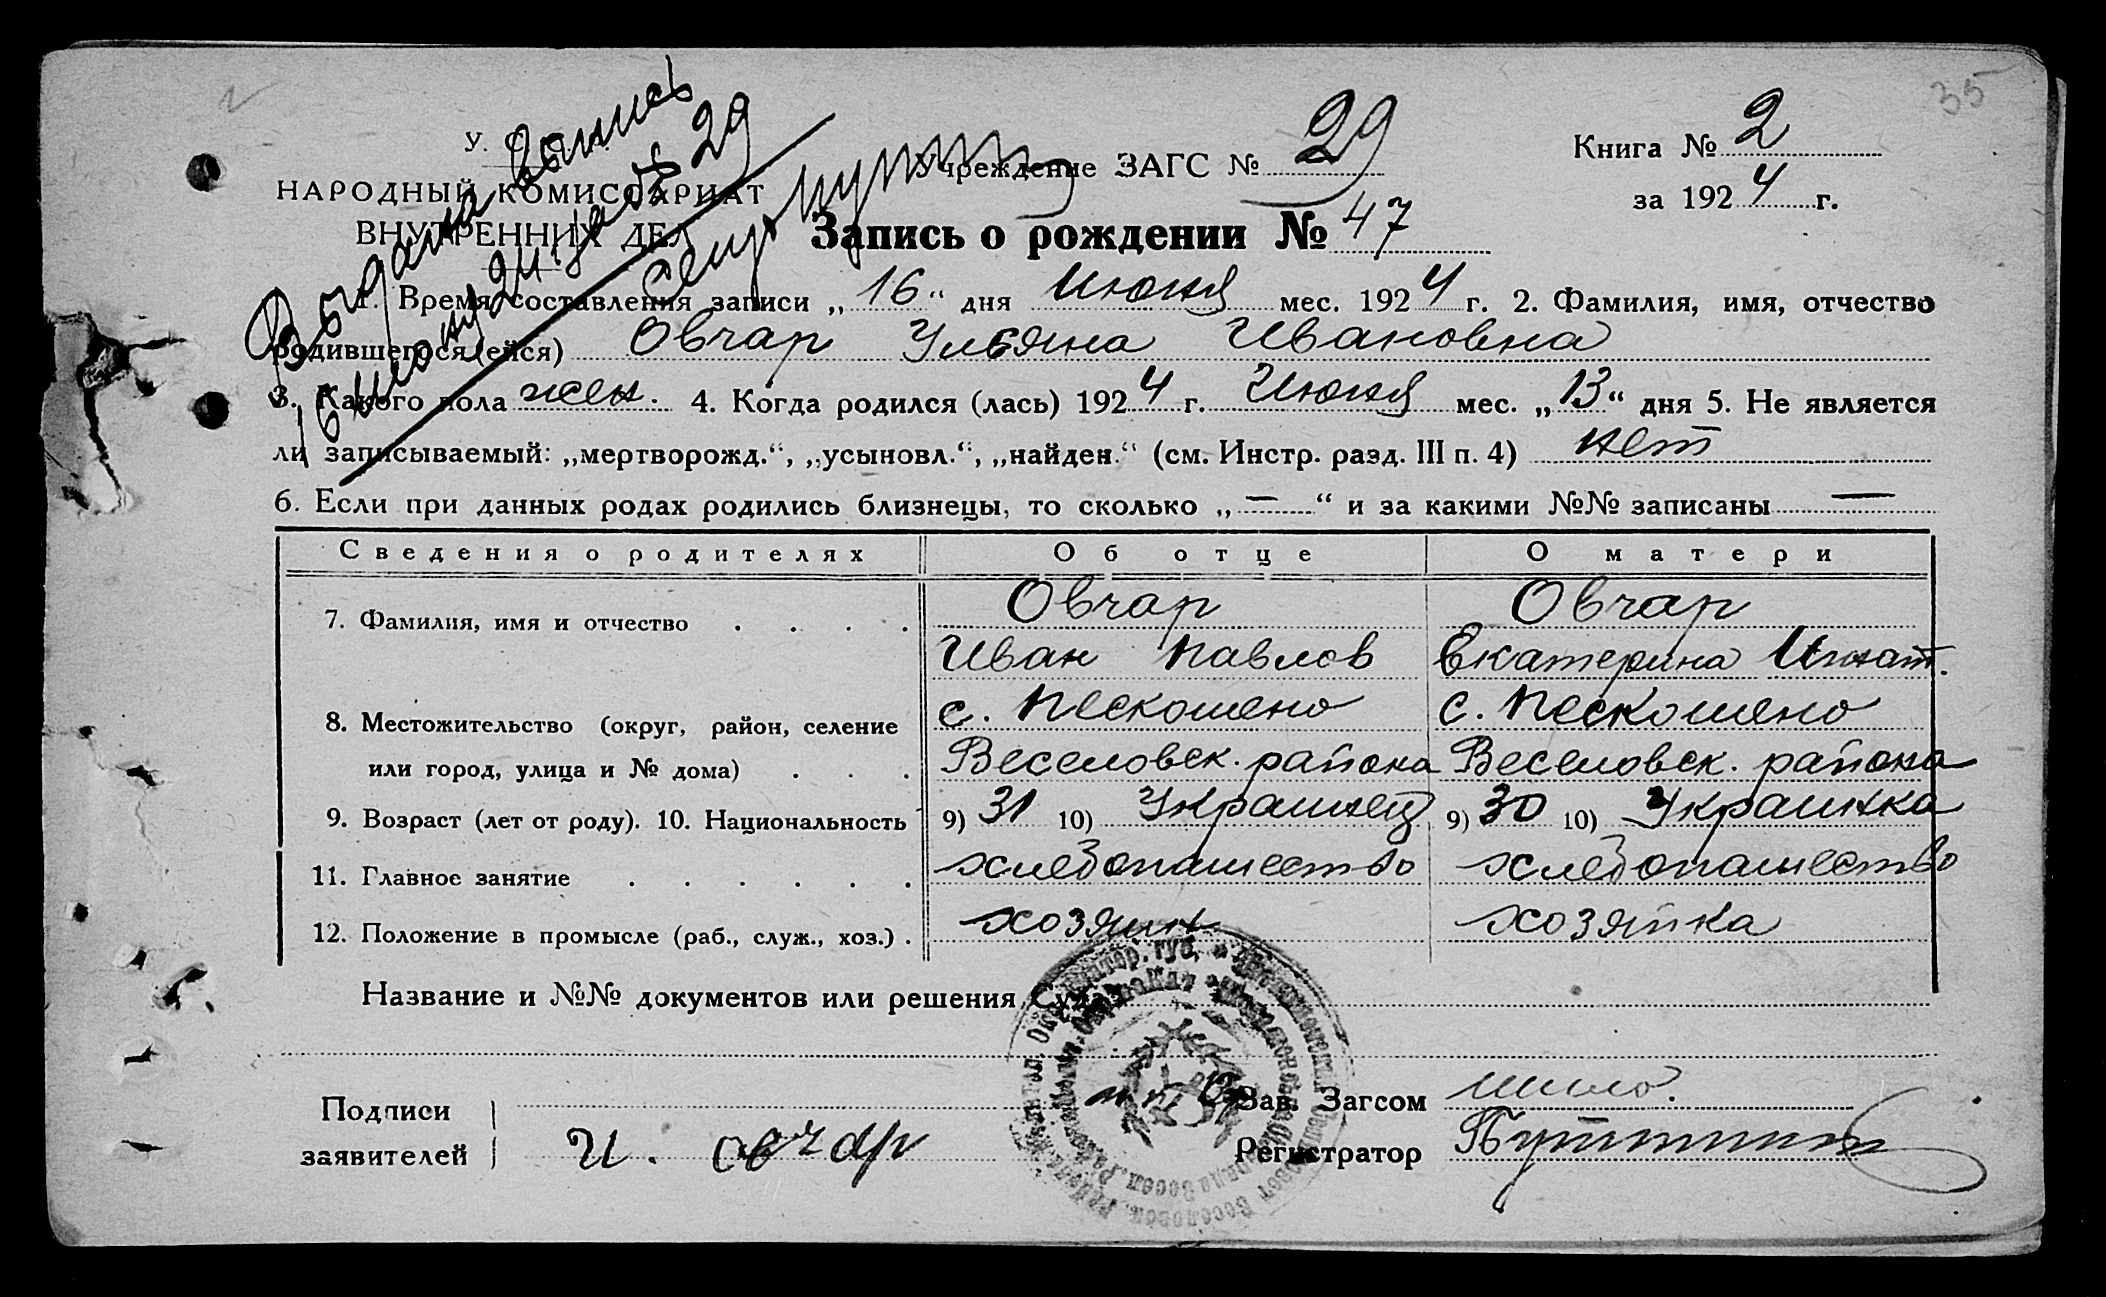 35
У. С.
НАРОДНЫЙ КОМИССАРИАТ
ВНУТРЕННИХ ДЕЛ
Выдана выпись
16 июня 24 г. за № 29
Учреждение ЗАГС № 29
Книга № 2
за 1924 г.
Запись о рождении № 47
1. Время составления записи „16“ дня Июня мес. 1924 г. 2. Фамилия, имя, отчество
родившегося (ейся) Овчар Ульяна Ивановна
3. Какого пола жен. 4. Когда родился (лась) 1924 г. Июня мес. „13“ дня 5. Не является
ли записываемый: „мертворожд.“, „усыновл.“, „найден.“ (см. Инстр. разд. III п. 4) нет
6. Если при данных родах родились близнецы, то сколько „—“ и за какими №№ записаны —
Сведения о родителях Об отце О матери
7. Фамилия, имя и отчество . . . . Овчар Овчар
Иван Павлов Екатерина Игнат.
8. Местожительство (округ, район, селение с. Пескошено с. Пескошено
или город, улица и № дома) . . . Веселовск. района Веселовск. района
9. Возраст (лет от роду). 10. Национальность 9) 31 10) Украинец 9) 30 10) Украинка
11. Главное занятие . . . . . . хлебопашество хлебопашество
12. Положение в промысле (раб., служ., хоз.) . хозяин хозяйка
Название и №№ документов или решения Суда
Подписи
заявителей
И. Овчар
Зав. Загсом
Регистратор